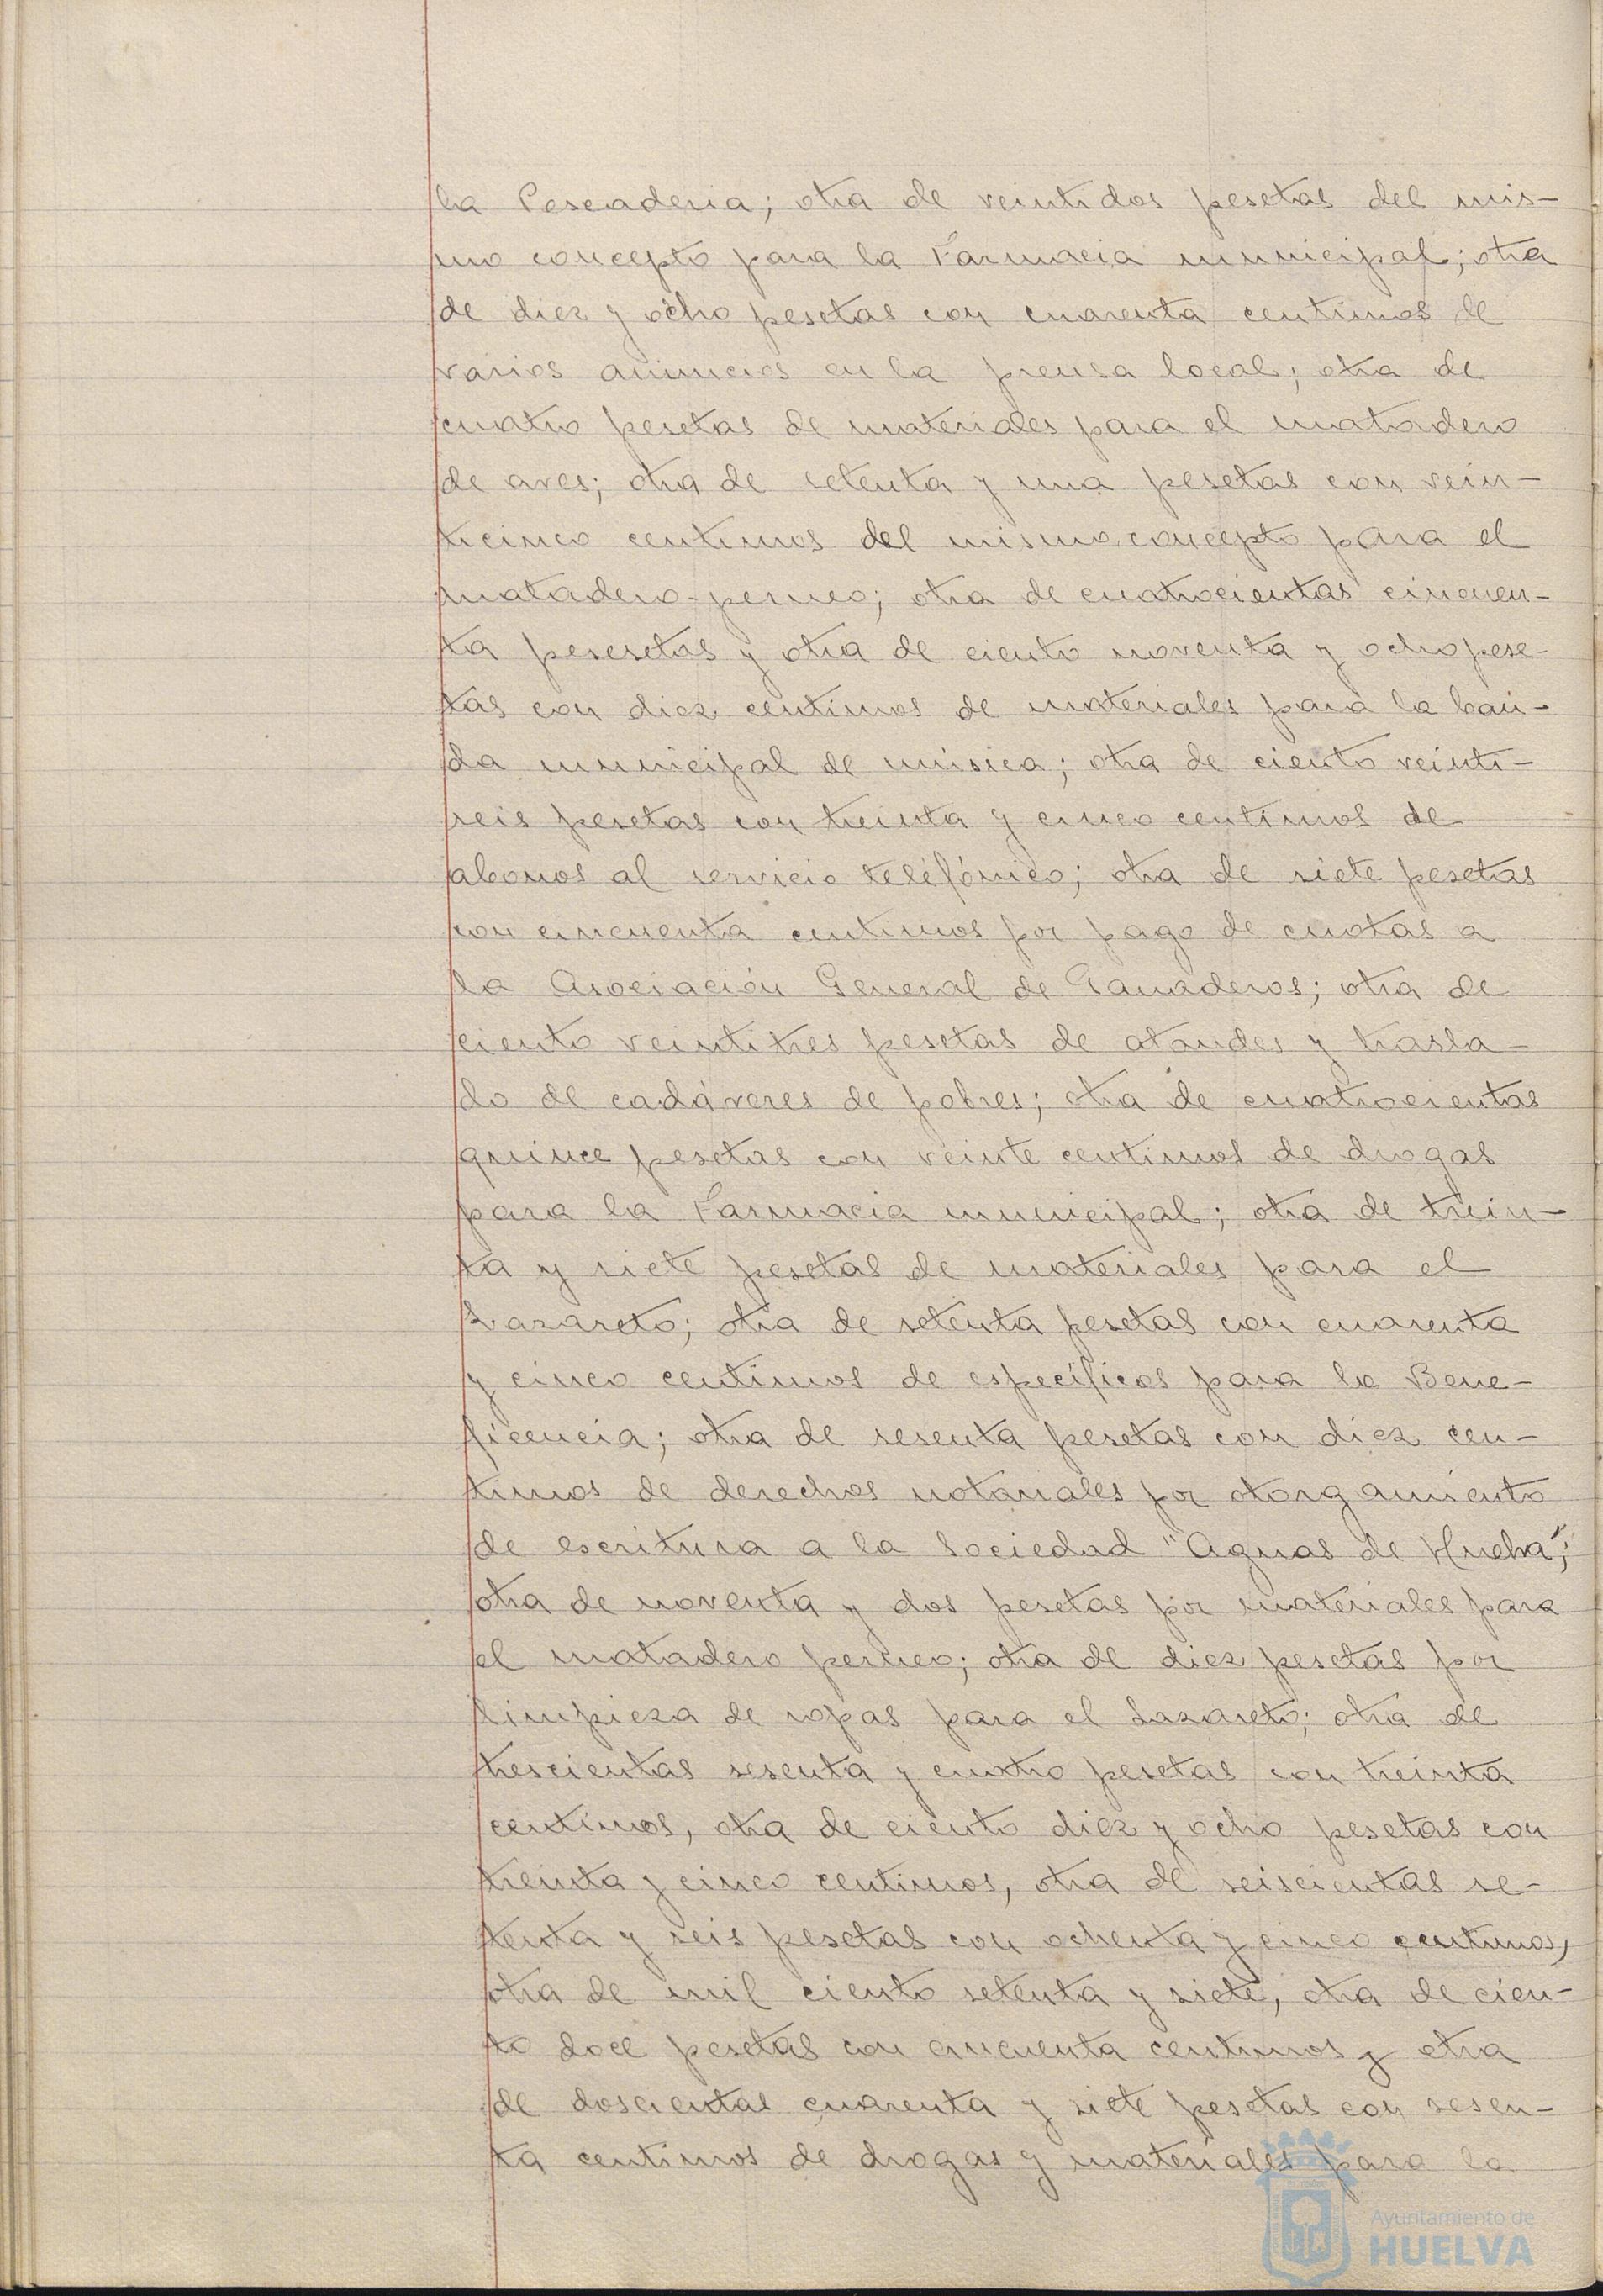 la Pescaderia; otra de veintidos pesetas del mis-
mo concepto para la Farmacia municipal; otra
de diez y ocho pesetas con cuarenta centimos de
varios anuncios en la prensa local; otra de
cuatro pesetas de materiales para el matadero
de aves; otra de setenta y una pesetas con vein-
ticinco centimos del mismo concepto para el
matadero perneo; otra de cuatrocientas cincuen-
ta pesesetas y otra de ciento noventa y ocho pese-
tas con diez centimos de materiales para la ban-
da municipal de música; otra de ciento veinti-
seis pesetas con treinta y cinco centimos de
abonos al servicio telefónico; otra de siete pesetas
con cincuenta centimos por pago de cuotas a
la Asociación General de Ganaderos; otra de
ciento veintitres pesetas de ataudes y trasla-
do de cadáveres de pobres; otra de cuatrocientas
quince pesetas con veinte centimos de drogas
para la Farmacia municipal; otra de trein-
ta y siete pesetas de materiales para el
Lazareto; otra de setenta pesetas con cuarenta
y cinco centimos de específicos para la Bene-
ficencia; otra de sesenta pesetas con diez cen-
timos de derechos notariales por otorgamiento
de escritura a la Sociedad "Aguas de Huelva";
otra de noventa y dos pesetas por materiales para
el matadero perneo; otra de diez pesetas por
limpieza de ropas para el Lazareto; otra de
trescientas sesenta y cuatro pesetas con treinta
centimos, otra de ciento diez y ocho pesetas con
treinta y cinco centimos, otra de seiscientas se-
tenta y seis pesetas con ochenta y cinco centimos,
otra de mil ciento setenta y siete, otra de cien-
to doce pesetas con cincuenta centimos y otra
de doscientas cuarenta y siete pesetas con sesen-
ta centimos de drogas y materiales para la
Ayuntamiento de
HUELVA